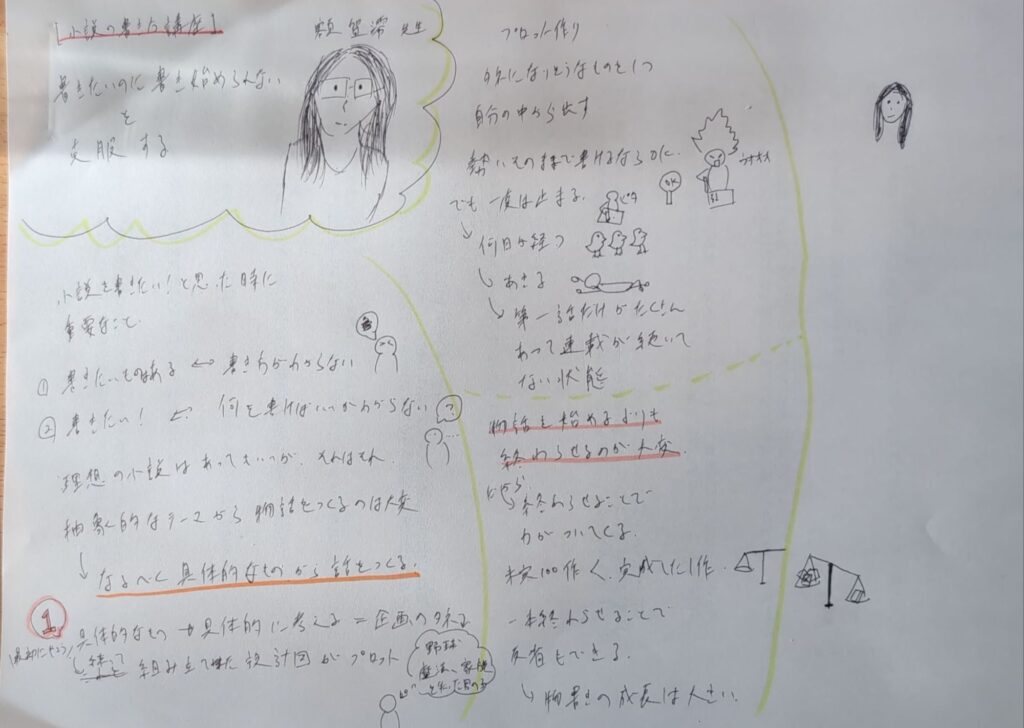 【小説の書き方講座】
額賀澪 先生
書きたいのに書き始められない
を
克服する
小説を書きたい！と思った時に
重要なこと
① 書きたいものはある ↔ 書き方がわからない
② 書きたい！ ← 何を書けばいいかわからない
?
理想の小説はあっていいが、それはそれ
抽象的なテーマから物語をつくるのは大変
↳ なるべく具体的なものから話をつくる。
1
具体的なもの → 具体的に考える = 企画のタネを
↳ 練って 組み立てた設計図がプロット
野球
魔法、家族
プロット作り
タネになりそうなものを1つ
自分の中から出す
勢いそのままで書けるならOKに。
OK
ウオオオ
でも一度は止まる。
ピタ
↳ 何日か経つ
↳ あきる
↳ 第一話だけがたくさん
あって連載が続いて
ない状態
物語を始めるよりも
終わらせるのが大変
だから、
↳ 終わらせることで
力がついてくる。
未完100作 < 完成した1作
一本終わらせることで
反省もできる。
↳ 物書きの成長は大きい。